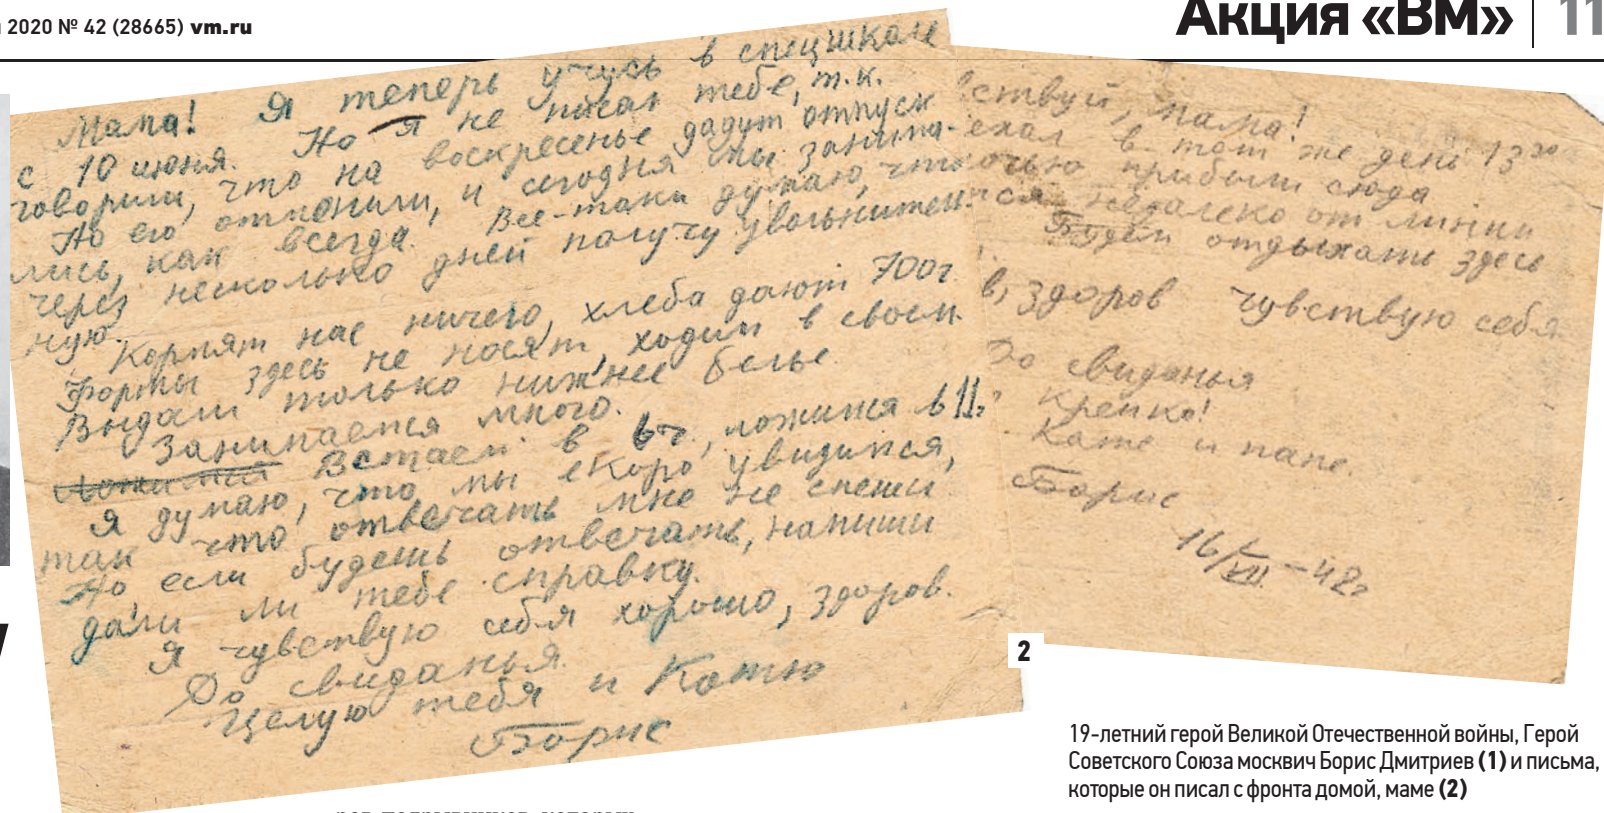 2020 № 42 (28665) vm.ru
Акция «ВМ» 11
Мама! Я теперь учусь в спецшколе
с 10 июня. Но я не писал тебе, т.к.
говорили, что на воскресенье дадут отпуск
Но его отменили, и сегодня мы занима-
лись, как всегда. Все-таки думаю, что
через несколько дней получу увольнитель-
ную.
Кормят нас ничего, хлеба дают 700г.
Формы здесь не носят, ходим в своем.
Выдали только нижнее белье.
Занимаемся много.
Встаем в 6ч., ложимся в 11ч
Я думаю, что мы скоро увидимся,
так что отвечать мне не спеши
Но если будешь отвечать, напиши
дали ли тебе справку.
Я чувствую себя хорошо, здоров.
До свиданья.
Целую тебя и Катю
Борис
ствуй, мама!
ехал в тот же день 13 30
очью прибыли сюда
ся недалеко от линии
Будем отдыхать здесь
в, здоров чувствую себя
До свиданья
крепко!
Кате и папе.
Борис
16/VII – 42г
2
19-летний герой Великой Отечественной войны, Герой
Советского Союза москвич Борис Дмитриев (1) и письма,
которые он писал с фронта домой, маме (2)